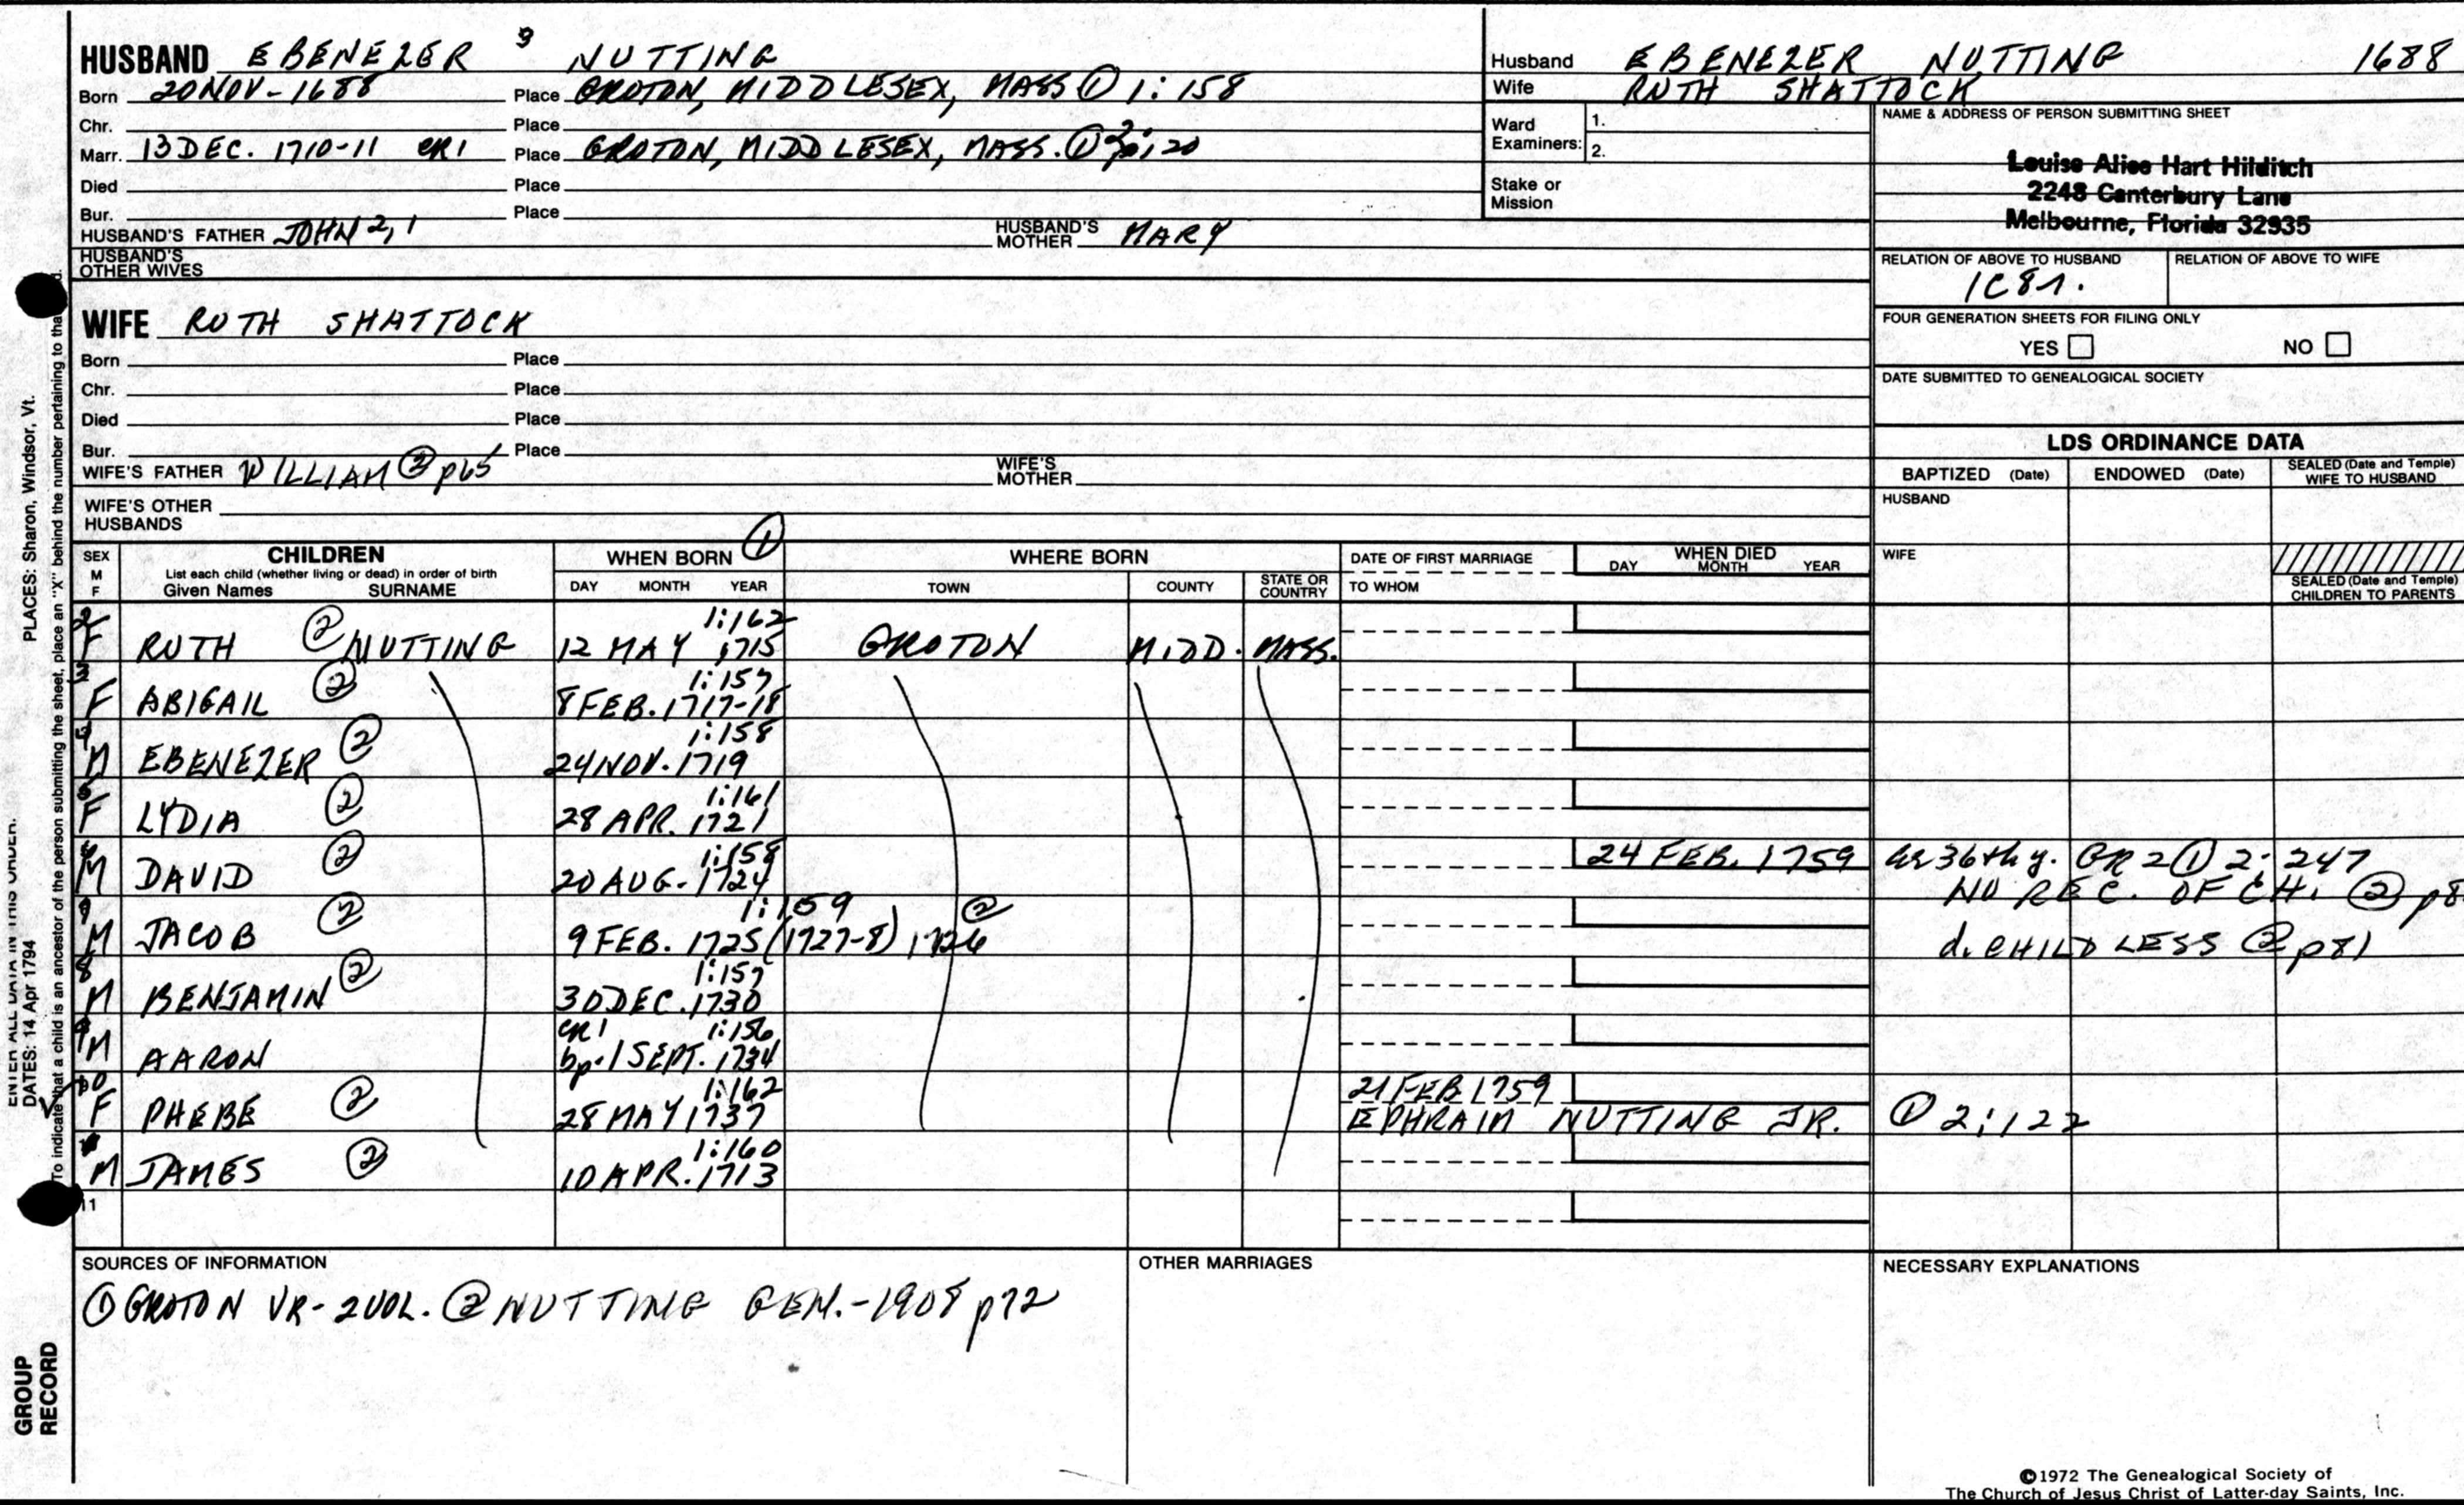 HUSBAND EBENEZER 3 NUTTING
Born 20 NOV-1688 Place GROTON, MIDDLESEX, MASS ① 1:158
Chr. Place
Marr. 13 DEC. 1710-11 CR1 Place GROTON, MIDDLESEX, MASS. ① 2:120
Died Place
Bur. Place
HUSBAND'S FATHER JOHN 2, 1 HUSBAND'S MOTHER MARY
HUSBAND'S OTHER WIVES
WIFE RUTH SHATTOCK
Born Place
Chr. Place
Died Place
Bur. Place
WIFE'S FATHER WILLIAM ② p65 WIFE'S MOTHER
WIFE'S OTHER HUSBANDS
Husband EBENEZER NUTTING 1688
Wife RUTH SHATTOCK
Ward Examiners: 1.
2.
Stake or Mission
NAME & ADDRESS OF PERSON SUBMITTING SHEET
Louise Alice Hart Hilditch
2248 Canterbury Lane
Melbourne, Florida 32935
RELATION OF ABOVE TO HUSBAND RELATION OF ABOVE TO WIFE
1C8r.
FOUR GENERATION SHEETS FOR FILING ONLY
YES NO
DATE SUBMITTED TO GENEALOGICAL SOCIETY
LDS ORDINANCE DATA
BAPTIZED (Date) ENDOWED (Date) SEALED (Date and Temple) WIFE TO HUSBAND
HUSBAND
WIFE
SEALED (Date and Temple) CHILDREN TO PARENTS
SEX M F CHILDREN WHEN BORN ① WHERE BORN DATE OF FIRST MARRIAGE WHEN DIED
List each child (whether living or dead) in order of birth
Given Names SURNAME DAY MONTH YEAR TOWN COUNTY STATE OR COUNTRY TO WHOM DAY MONTH YEAR
1:162
2 F RUTH ② NUTTING 12 MAY 1715 GROTON MIDD. MASS.
1:157
3 F ABIGAIL ② 8 FEB. 1717-18
1:158
4 M EBENEZER ② 24 NOV. 1719
1:161
5 F LYDIA ② 28 APR. 1721
1:158
6 M DAVID ② 20 AUG. 1724 24 FEB. 1759 in 36th y. GR2 ① 2:247
NO REC. OF CH. ② p8
1:159 ②
M JACOB ② 9 FEB. 1725 (1727-8) 1726 d. CHILDLESS ② p81
1:157
8 M BENJAMIN ② 30 DEC. 1730
CR1 1:156
9 M AARON bp. 1 SEPT. 1734
1:162 21 FEB 1759
10 F PHEBE ② 28 MAY 1737 EPHRAIM NUTTING JR. ① 2:122
1:160
M JAMES ② 10 APR. 1713
11
SOURCES OF INFORMATION
① GROTON VR- 2 VOL. ② NUTTING GEN.-1908 p72
OTHER MARRIAGES
NECESSARY EXPLANATIONS
©1972 The Genealogical Society of
The Church of Jesus Christ of Latter-day Saints, Inc.
DATES: 14 Apr 1794
PLACES: Sharon, Windsor, Vt.
ENTER ALL DATA IN THIS ORDER:
To indicate that a child is an ancestor of the person submitting the sheet, place an "X" behind the number pertaining to tha d.
GROUP
RECORD